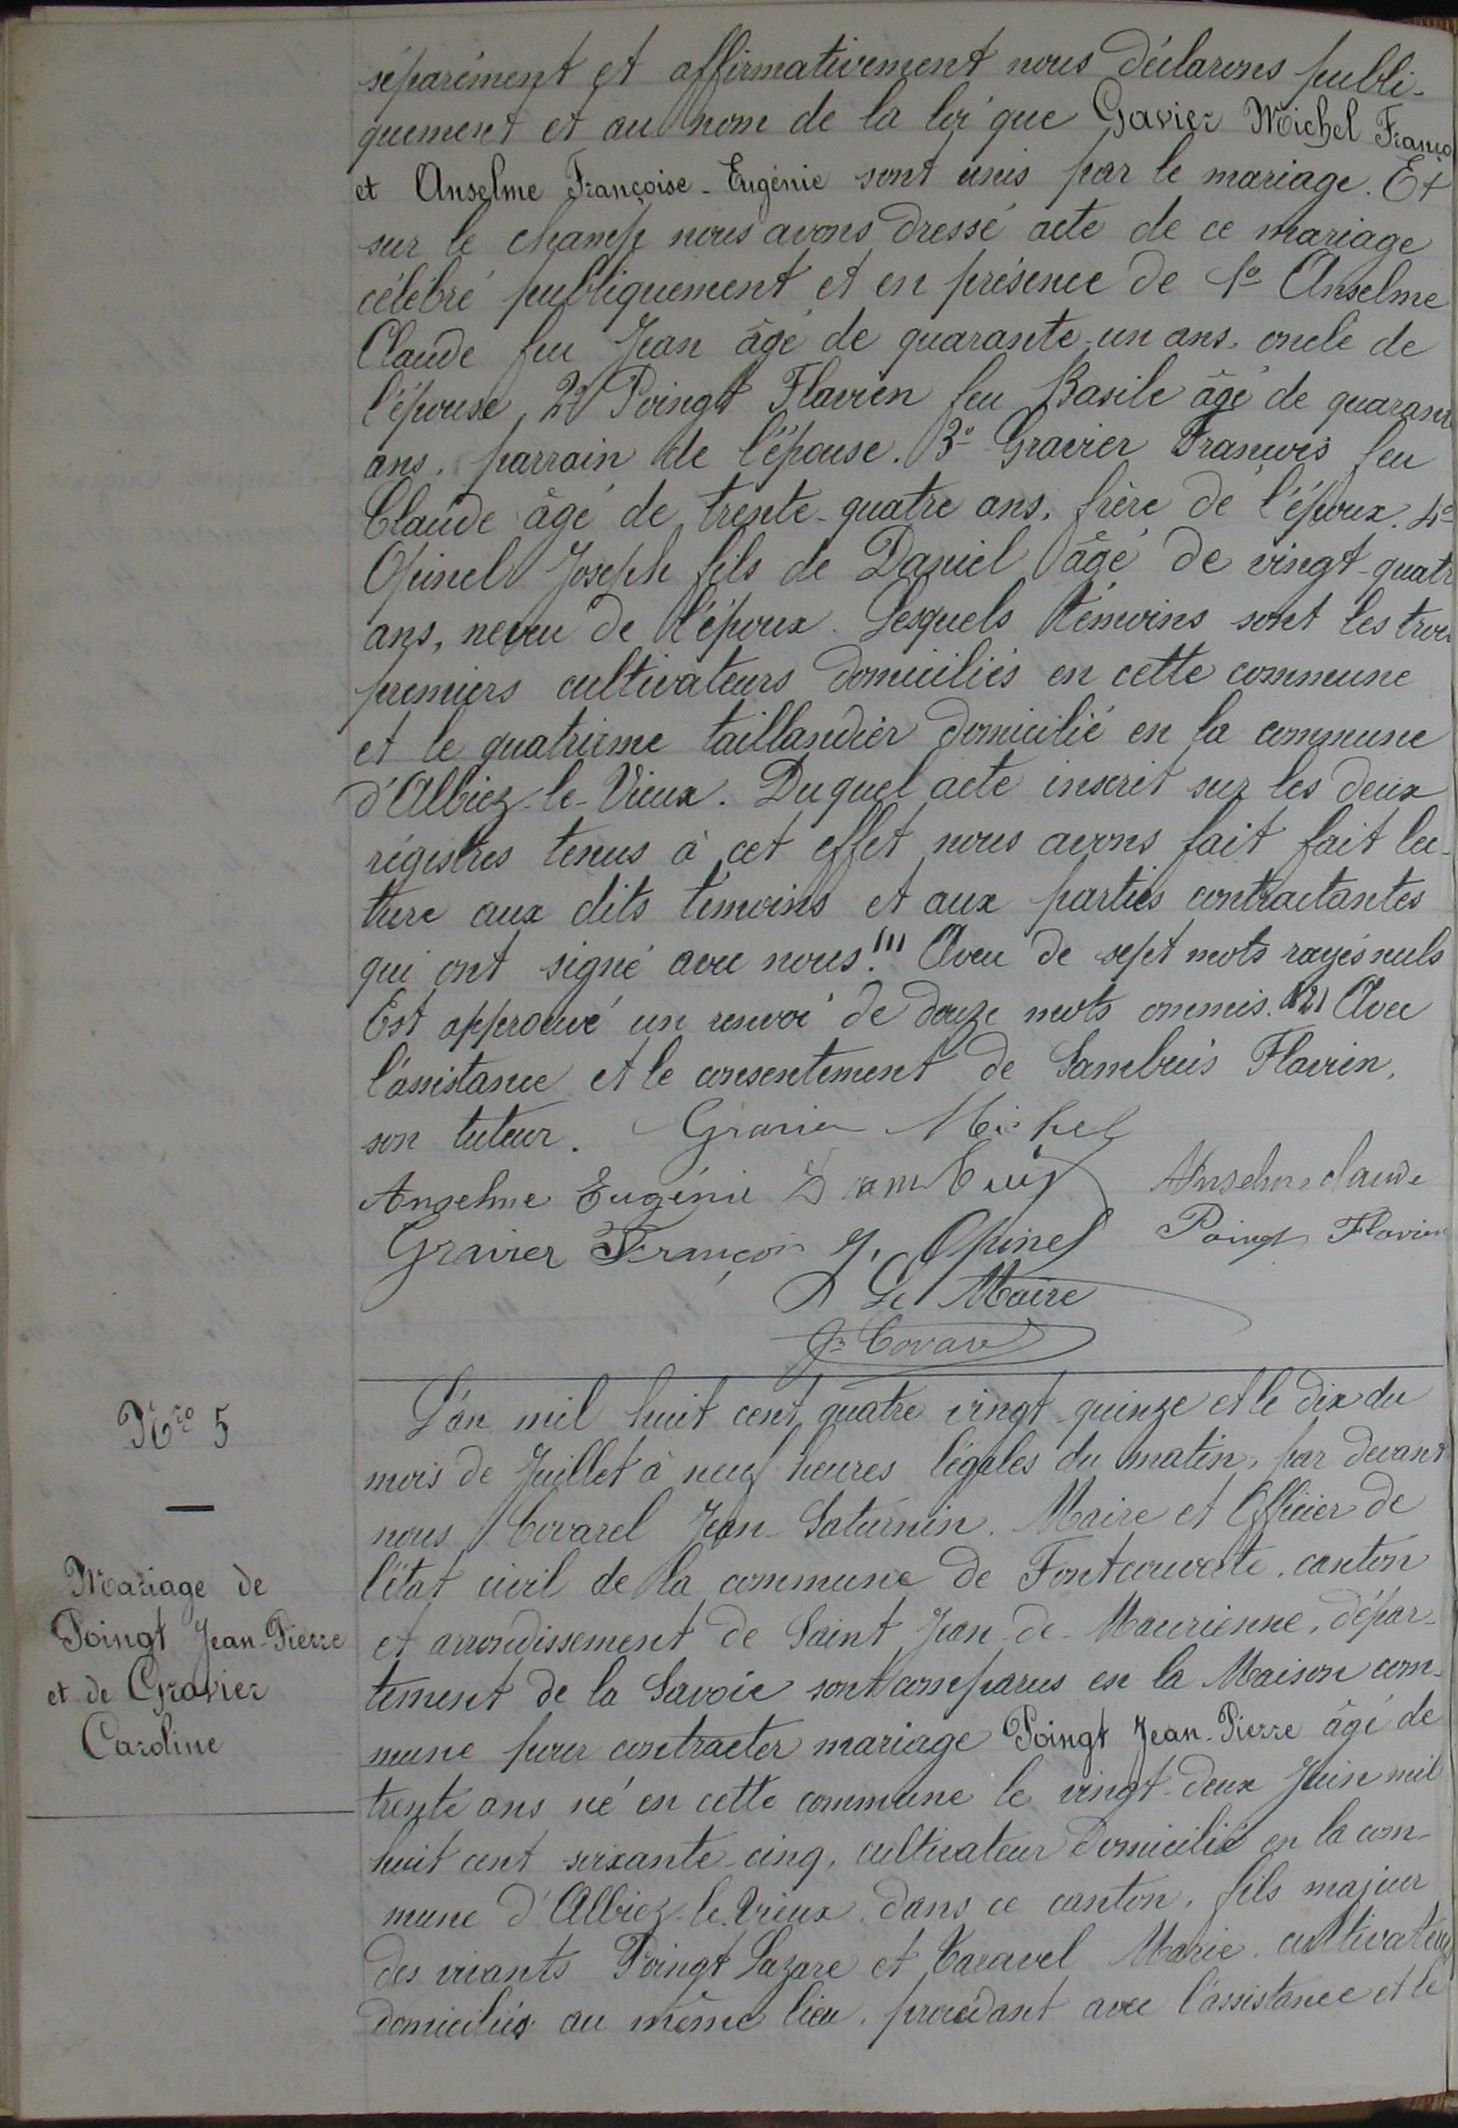 séparément et affirmativement nous déclarons publi-
quement et au nom de la loi que Gavier Michel Franço
et Anselme Françoise-Eugénie sont unis par le mariage. Et
sur le champ nous avons dressé acte de ce mariage
célébré publiquement et en présence de 1º Anselme
Claude feu Jean âgé de quarante-un ans, oncle de
l'épouse, 2º Poingt Flavien feu Basile âgé de quarante
ans, parrain de l'épouse. 3º Gravier François feu
Claude âgé de trente-quatre ans, frère de l'époux. 4º
Opinel Joseph fils de Daniel âgé de vingt-quatre
ans, neveu de l'époux. Lesquels témoins sont les trois
premiers cultivateurs domiciliés en cette commune
et le quatrième taillandier domicilié en la commune
d'Albiez-le-Vieux. Duquel acte inscrit sur les deux
régistres tenus à cet effet nous avons fait fait lec-
ture aux dits témoins et aux parties contractantes
qui ont signé avec nous. (1) Aveu de sept mots rayés nuls
Est approuvé un renvoi de douze mots ommis. (2) Avec
l'assistance et le consentement de Sambuis Flavien,
son tuteur. Gravier Michel
Anselme Eugénie Sambuis Anselme claude
Gravier François J. Opinel Poingt Flavien
Le Maire
J. Covarel
Nro 5
Mariage de
Poingt Jean-Pierre
et de Gravier
Caroline
L'an mil huit cent quatre vingt-quinze et le dix du
mois de Juillet à neuf heures légales du matin, par devant
nous Covarel Jean-Saturnin, Maire et Officier de
l'état civil de la commune de Fontcouverte, canton
et arrondissement de Saint Jean-de-Maurienne, dépar-
tement de la Savoie sont comparus en la Maison com-
mune pour contracter mariage Poingt Jean-Pierre âgé de
trente ans né en cette commune le vingt-deux Juin mil
huit cent soixante-cinq, cultivateur domicilié en la com-
mune d'Albiez-le-Vieux, dans ce canton, fils majeur
des vivants Poingt Lazare et Taravel Marie, cultivateurs
domiciliés au même lieu, procédant avec l'assistance et le